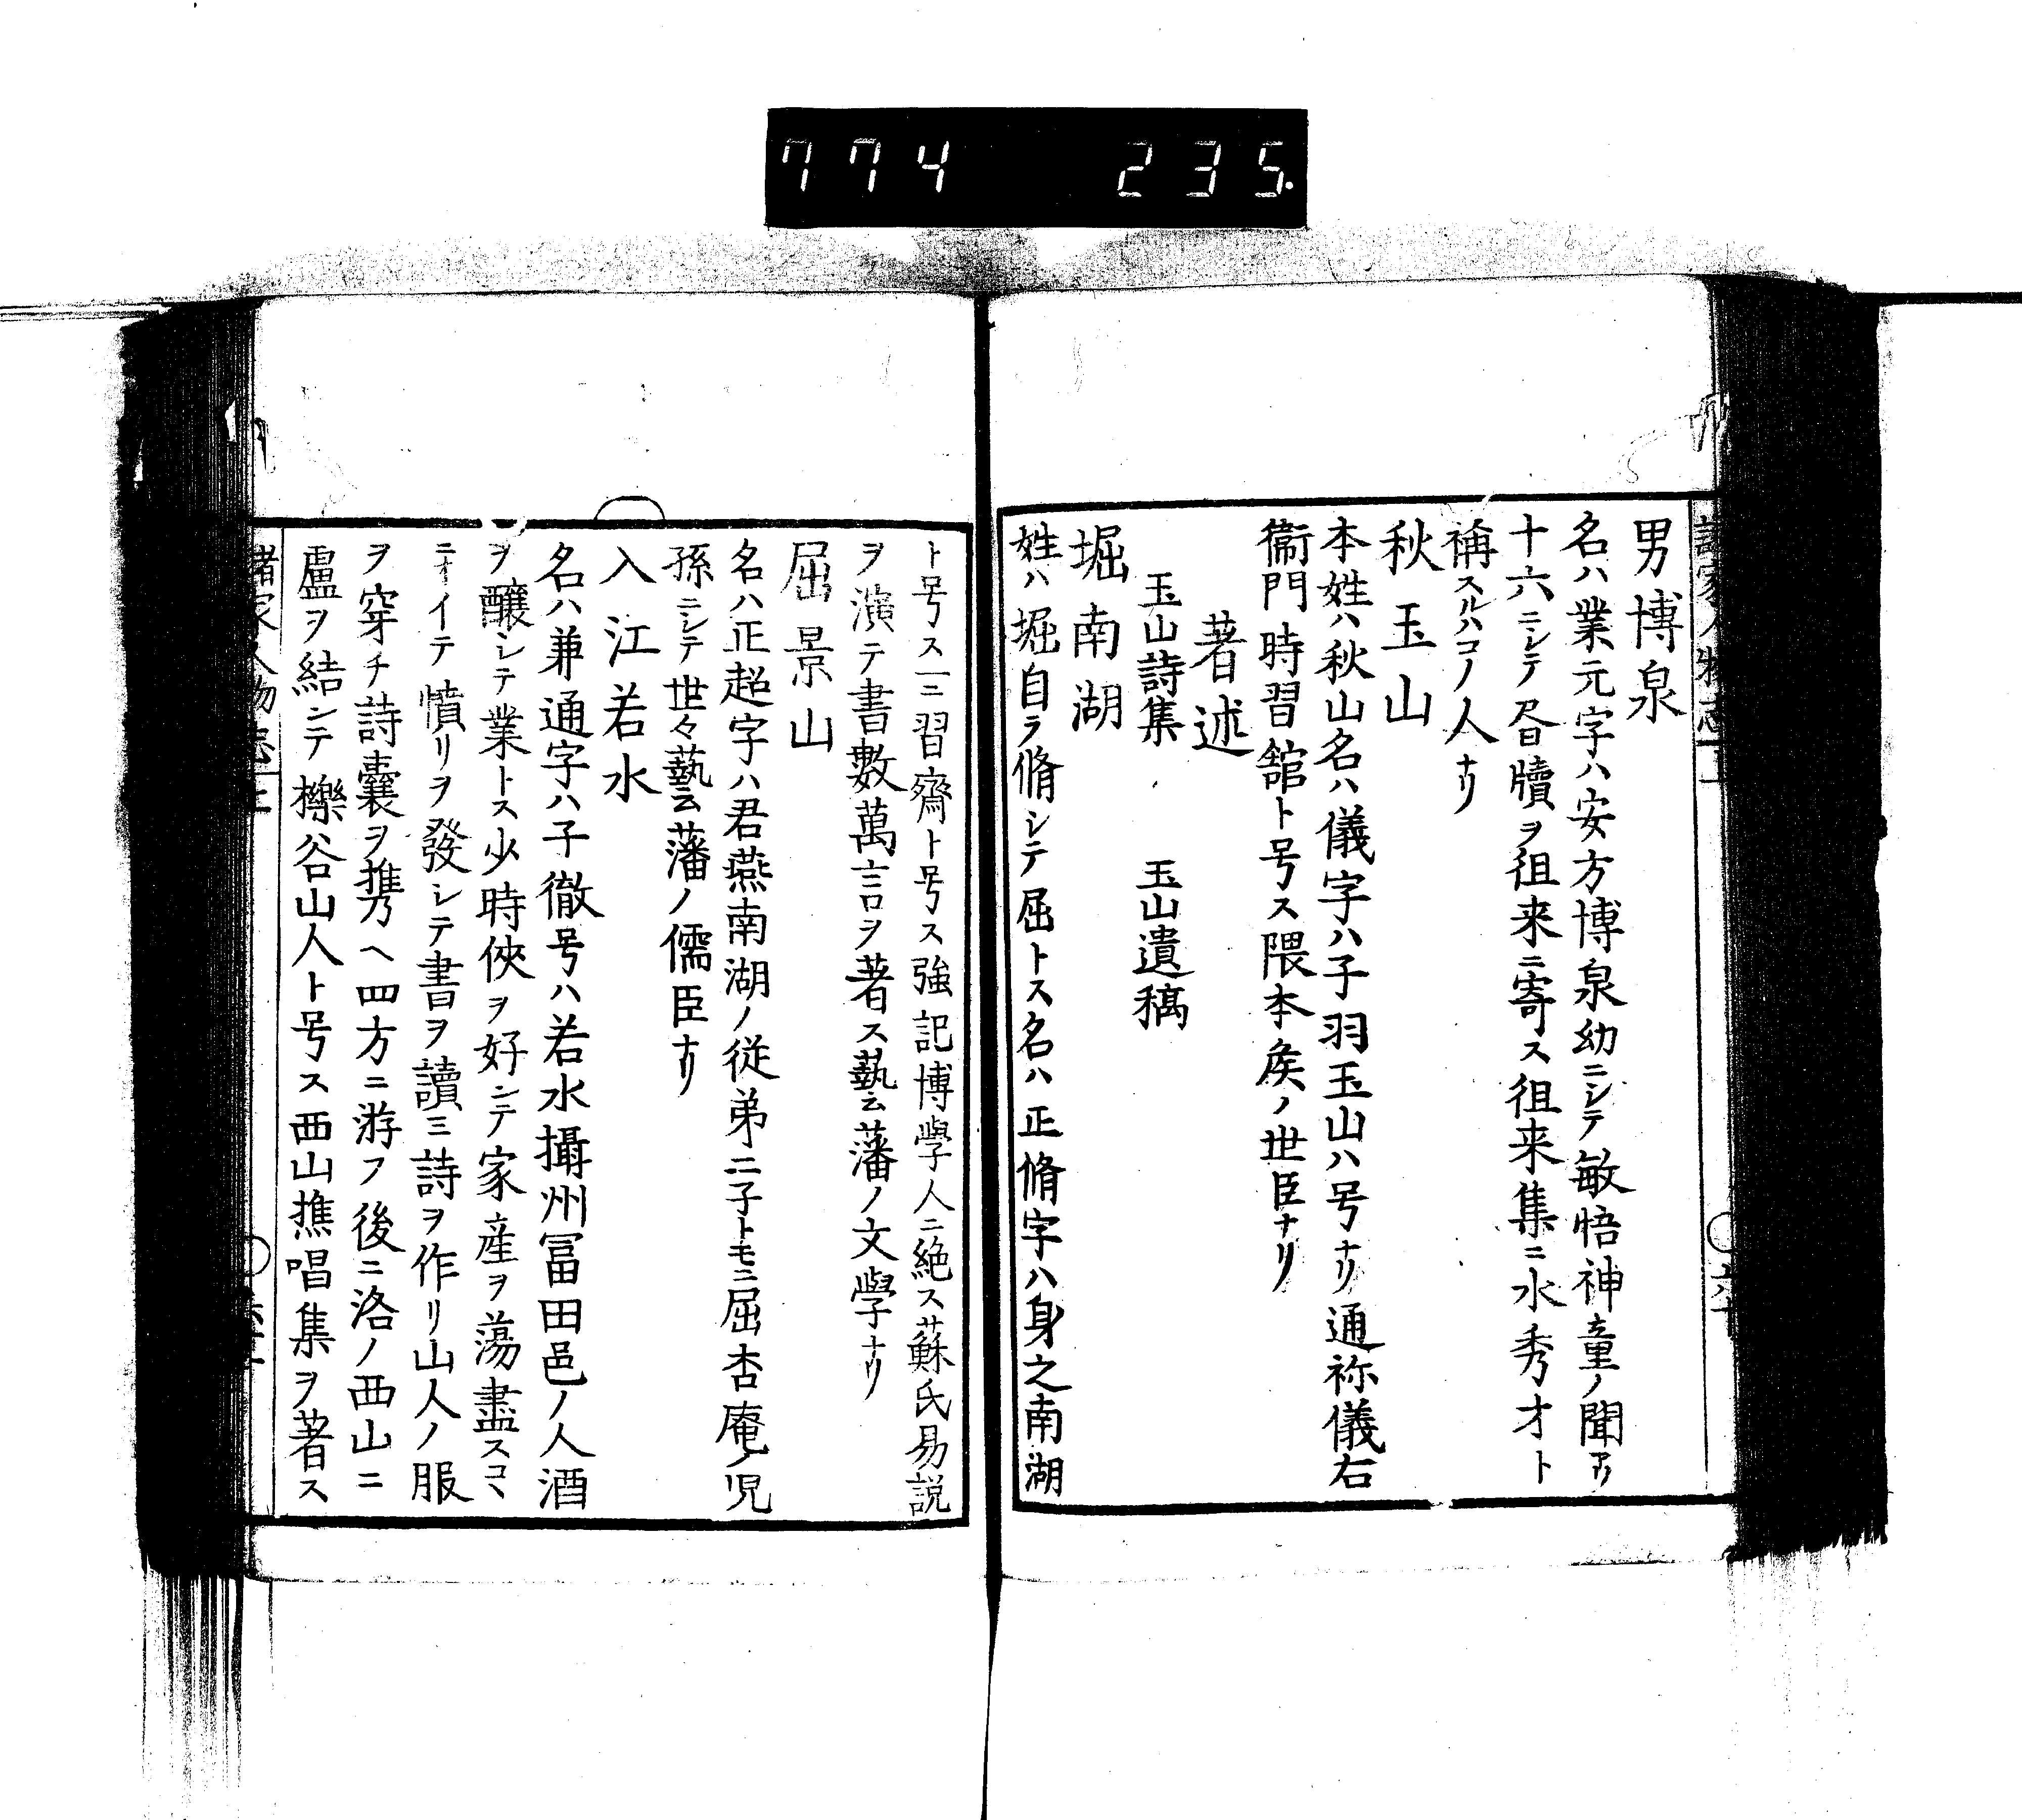 774 235.
男博泉
名ハ業元字ハ安方博泉幼ニシテ敏悟神童ノ聞アリ
十六ニシテ尺牘ヲ徂来ニ寄ス徂来集ニ水秀才ト
稱スルハコノ人ナリ
秋玉山
本姓ハ秋山名ハ儀字ハ子羽玉山ハ号ナリ通称儀右
衞門時習舘ト号ス隈本矦ノ世臣ナリ
著述
玉山詩集 玉山遺稿
堀南湖
姓ハ堀自ラ脩シテ屈トス名ハ正脩字ハ身之南湖
ト号ス一ニ習齋ト号ス強記博學人ニ絶ス蘇氏易説
ヲ演テ書數萬言ヲ著ス藝藩ノ文學ナリ
屈景山
名ハ正超字ハ君燕南湖ノ従弟ニ子トモニ屈杏庵ノ児
孫ニシテ世々藝藩ノ儒臣ナリ
入江若水
名ハ兼通字ハ子徹号ハ若水攝州冨田邑ノ人酒
ヲ釀シテ業トス少時俠ヲ好シテ家産ヲ蕩盡スコヽ
ニオイテ憤リヲ發シテ書ヲ讀ミ詩ヲ作リ山人ノ服
ヲ穿チ詩囊ヲ携ヘ四方ニ游フ後ニ洛ノ西山ニ
盧ヲ結ンテ櫟谷山人ト号ス西山樵唱集ヲ著ス
諸家人物志上